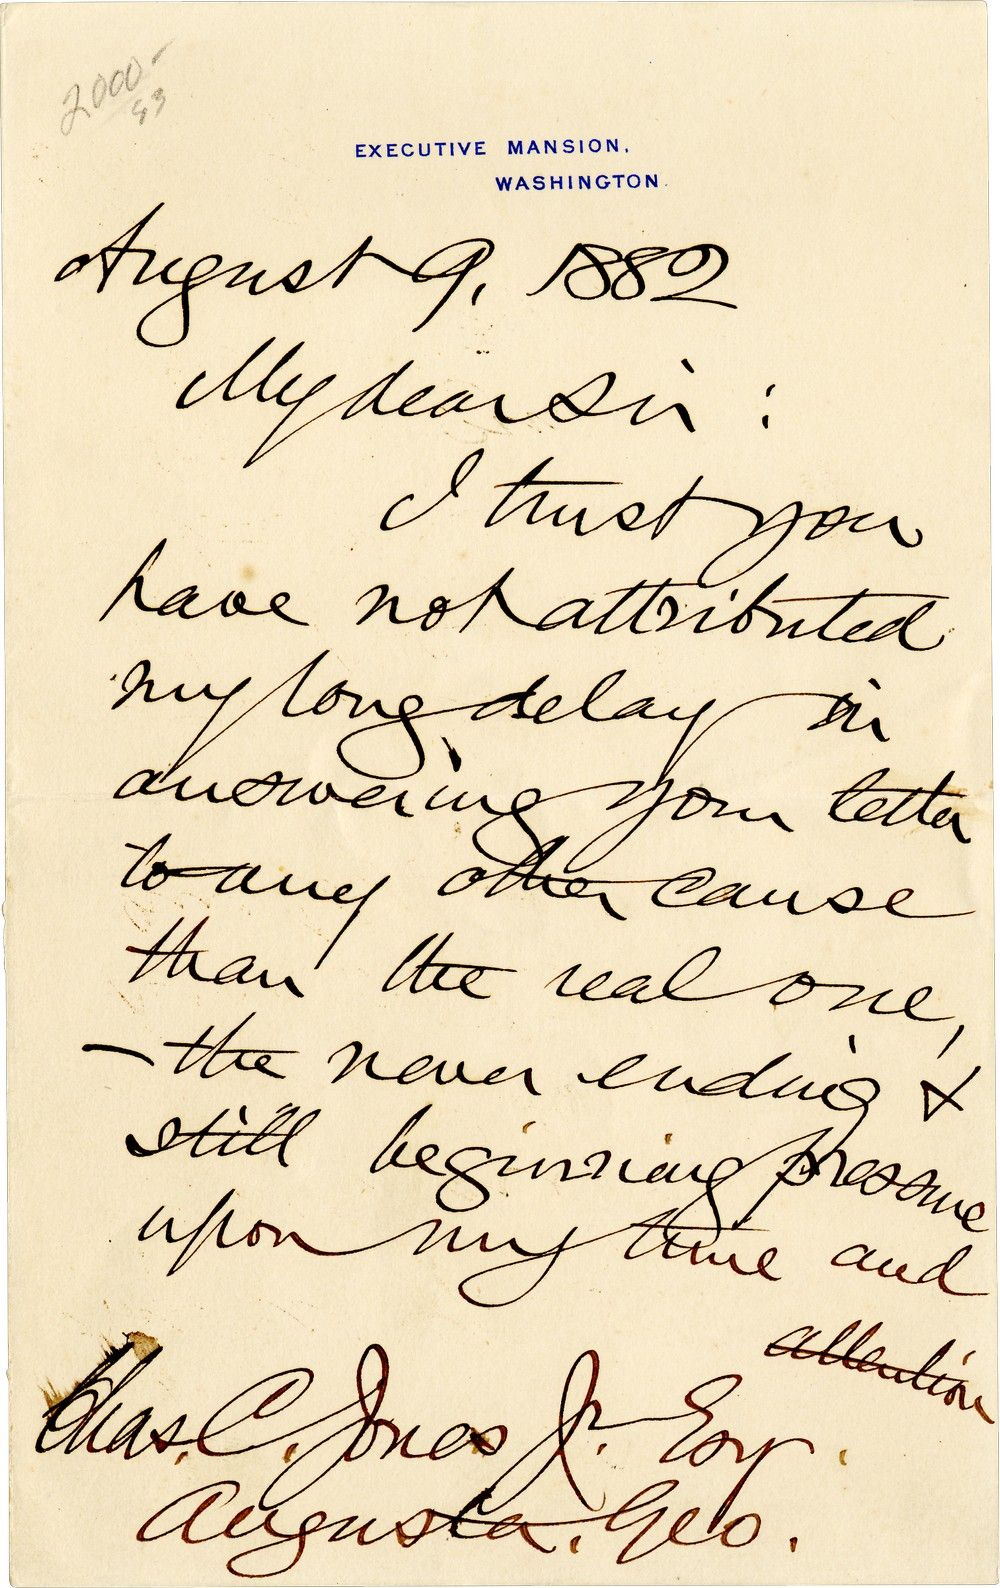 2000-
83
EXECUTIVE MANSION,
WASHINGTON.
August 9, 1882
My dear Sir :
I trust you
have not attributed
my long delay in
answering your letter
to any other cause
than the real one,
— the never ending &
still beginning pressure
upon my time and
attention
Chas. C. Jones Jr. Esq.
Augusta. Geo.